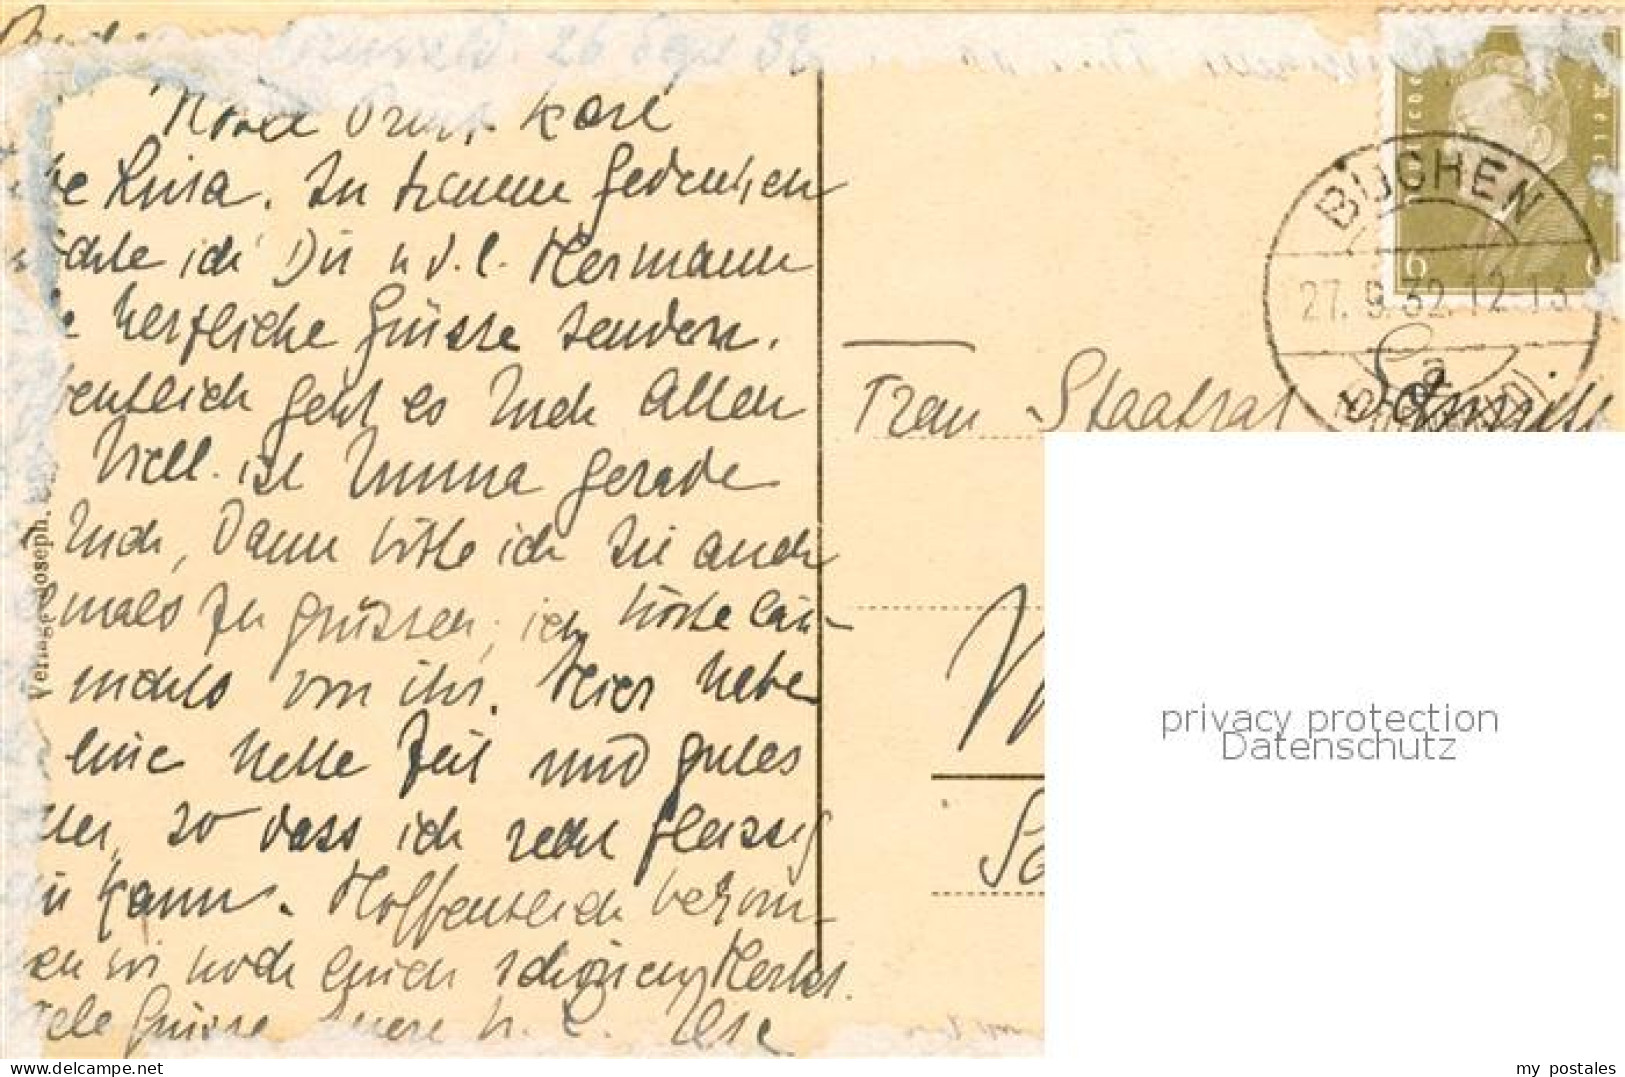 26 Sept 32
Hotel Prinz Karl
Luisa. In treuem Gedenken
möchte ich Dir u. d. l. Hermann
herzliche Grüsse senden.
Hoffentlich geht es Euch Allen
Viell. ist Emma gerade
Euch, dann bitte ich sie auch
mals zu grüssen, ich hörte län-
nichts von ihr. Hier habe
eine nette Zeit und gutes
so dass ich recht fleissig
kann. Hoffentlich bekom-
wir noch einen schönen Herbst.
Grüsse Eure Ilse
Verlag Joseph
BUCHEN
27.9.32.12-13
6
Frau Staatsrat Schmitt
privacy protection
Datenschutz
my postales